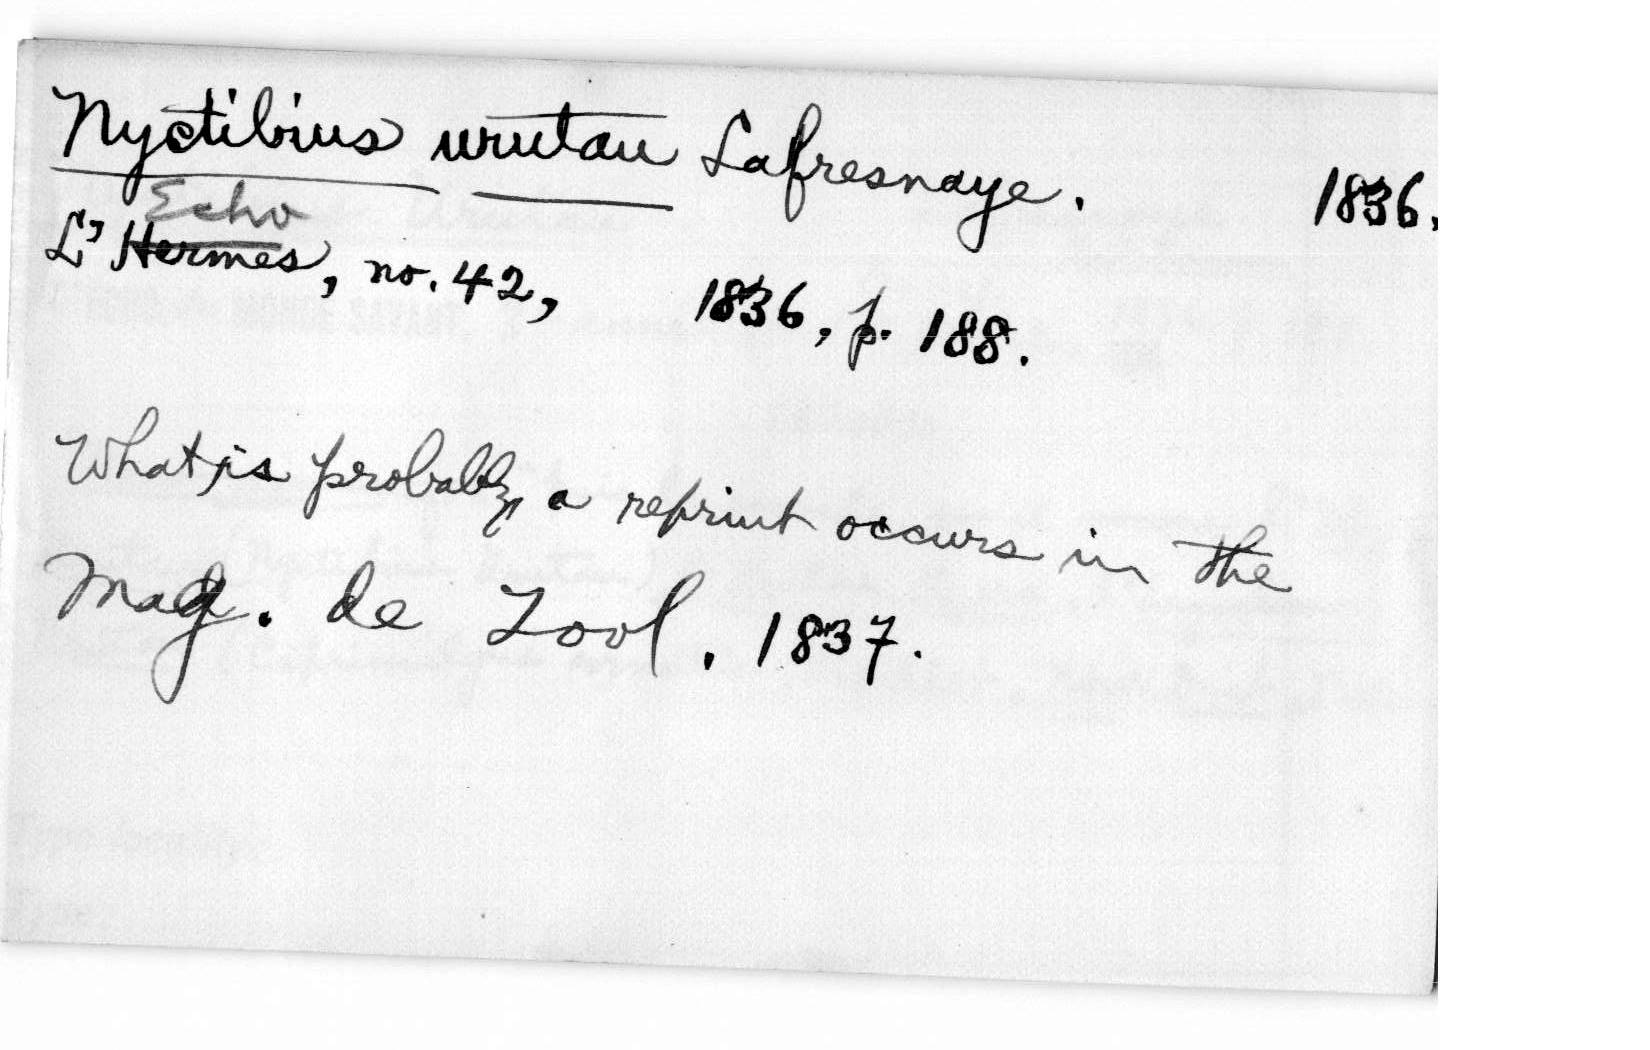 Nyctibius urutau Lafresnaye. 1836.
Echo
L' Hermes, no. 42, 1836, p. 188.
What is probably a reprint occurs in the
Mag. de Zool. 1837.